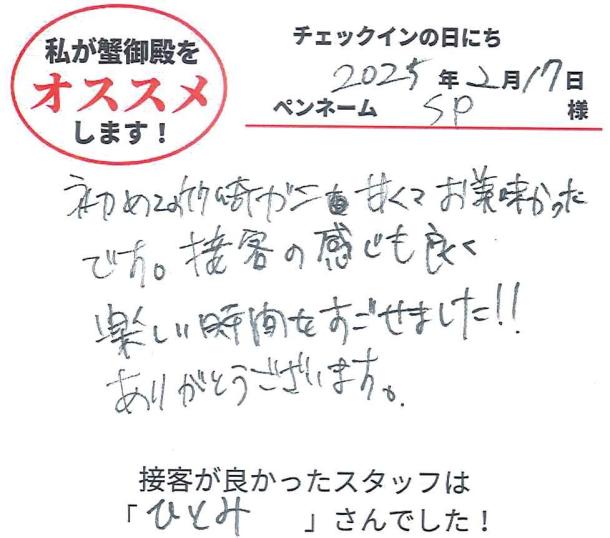 私が蟹御殿を
オススメ
します！
チェックインの日にち
2025年2月17日
ペンネーム SP 様
初めての竹崎ガニ甘くてお美味かった
です。接客の感じも良く
楽しい時間をすごせました!!
ありがとうございます。
接客が良かったスタッフは
「ひとみ」さんでした！